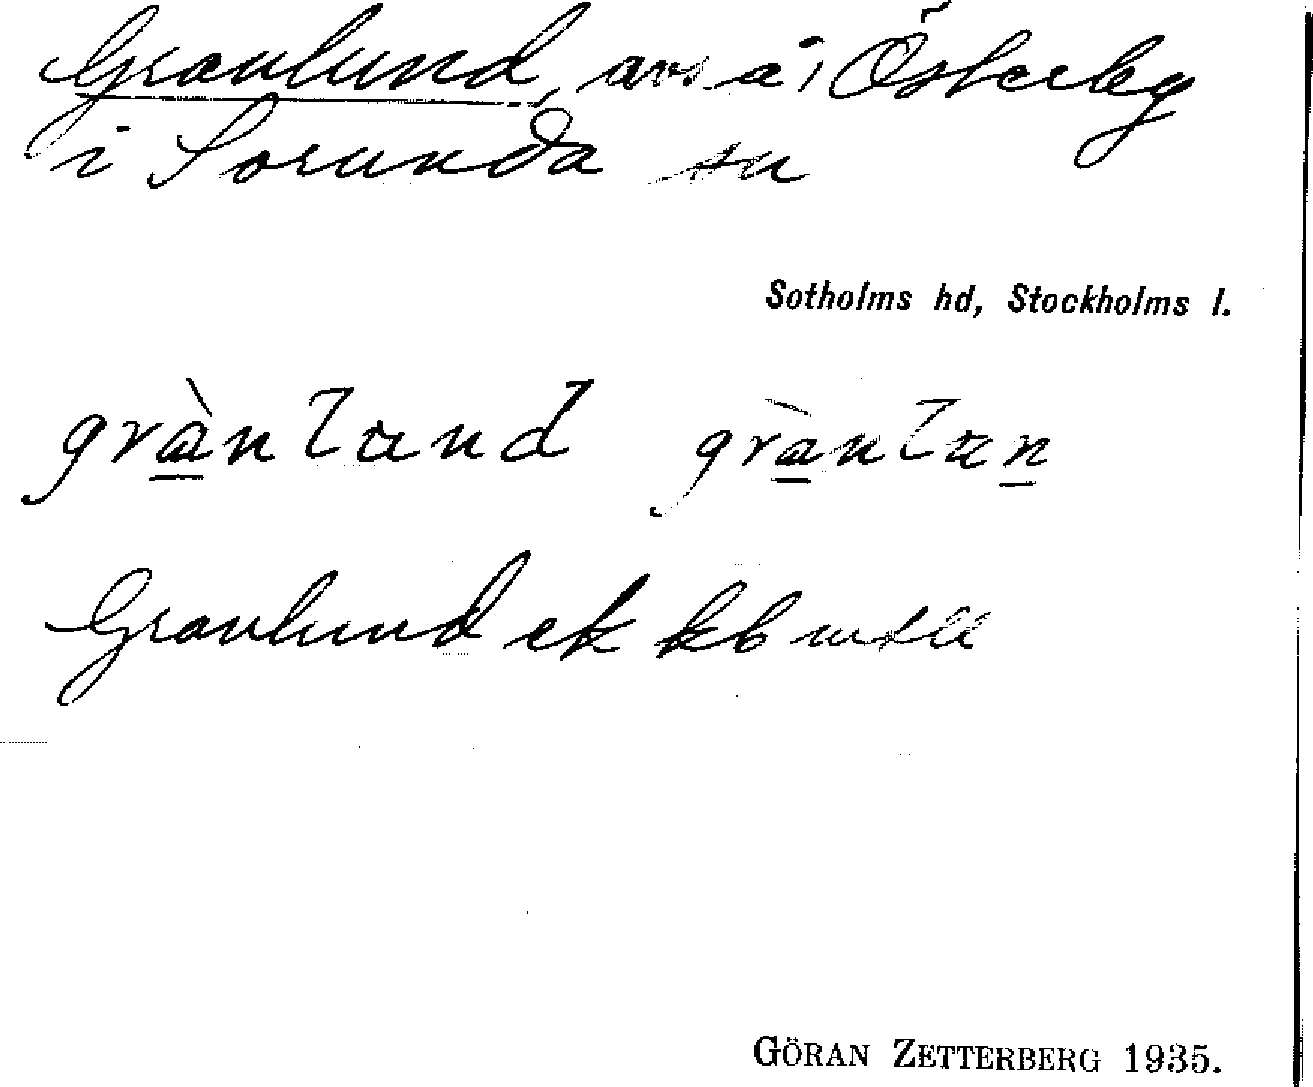 Granlund, avs å i Österby
i Sorunda sn
Sotholms hd, Stockholms l.
grànlund grànlun
Granlund ek kb
GÖRAN ZETTERBERG 1935.